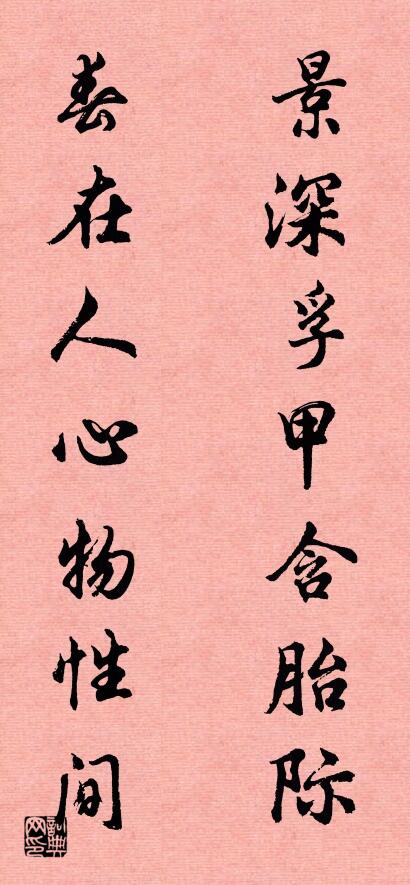 景深孚甲含胎际
春在人心物性间